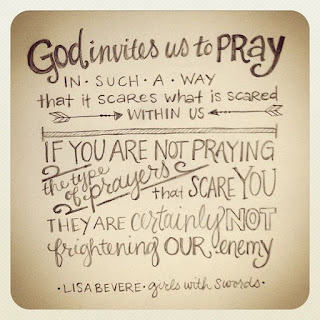 God invites us to PRAY
IN · SUCH · A · WAY
that it scares what is scared
WITHIN US
IF YOU ARE NOT PRAYING
the type of prayers that SCARE YOU
THEY ARE certainly NOT
frightening OUR enemy
· LISA BEVERE · girls with swords ·